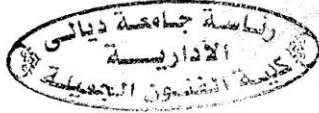 رئاسة جامعة ديالى
الادارية
كلية الفنون الجميلة